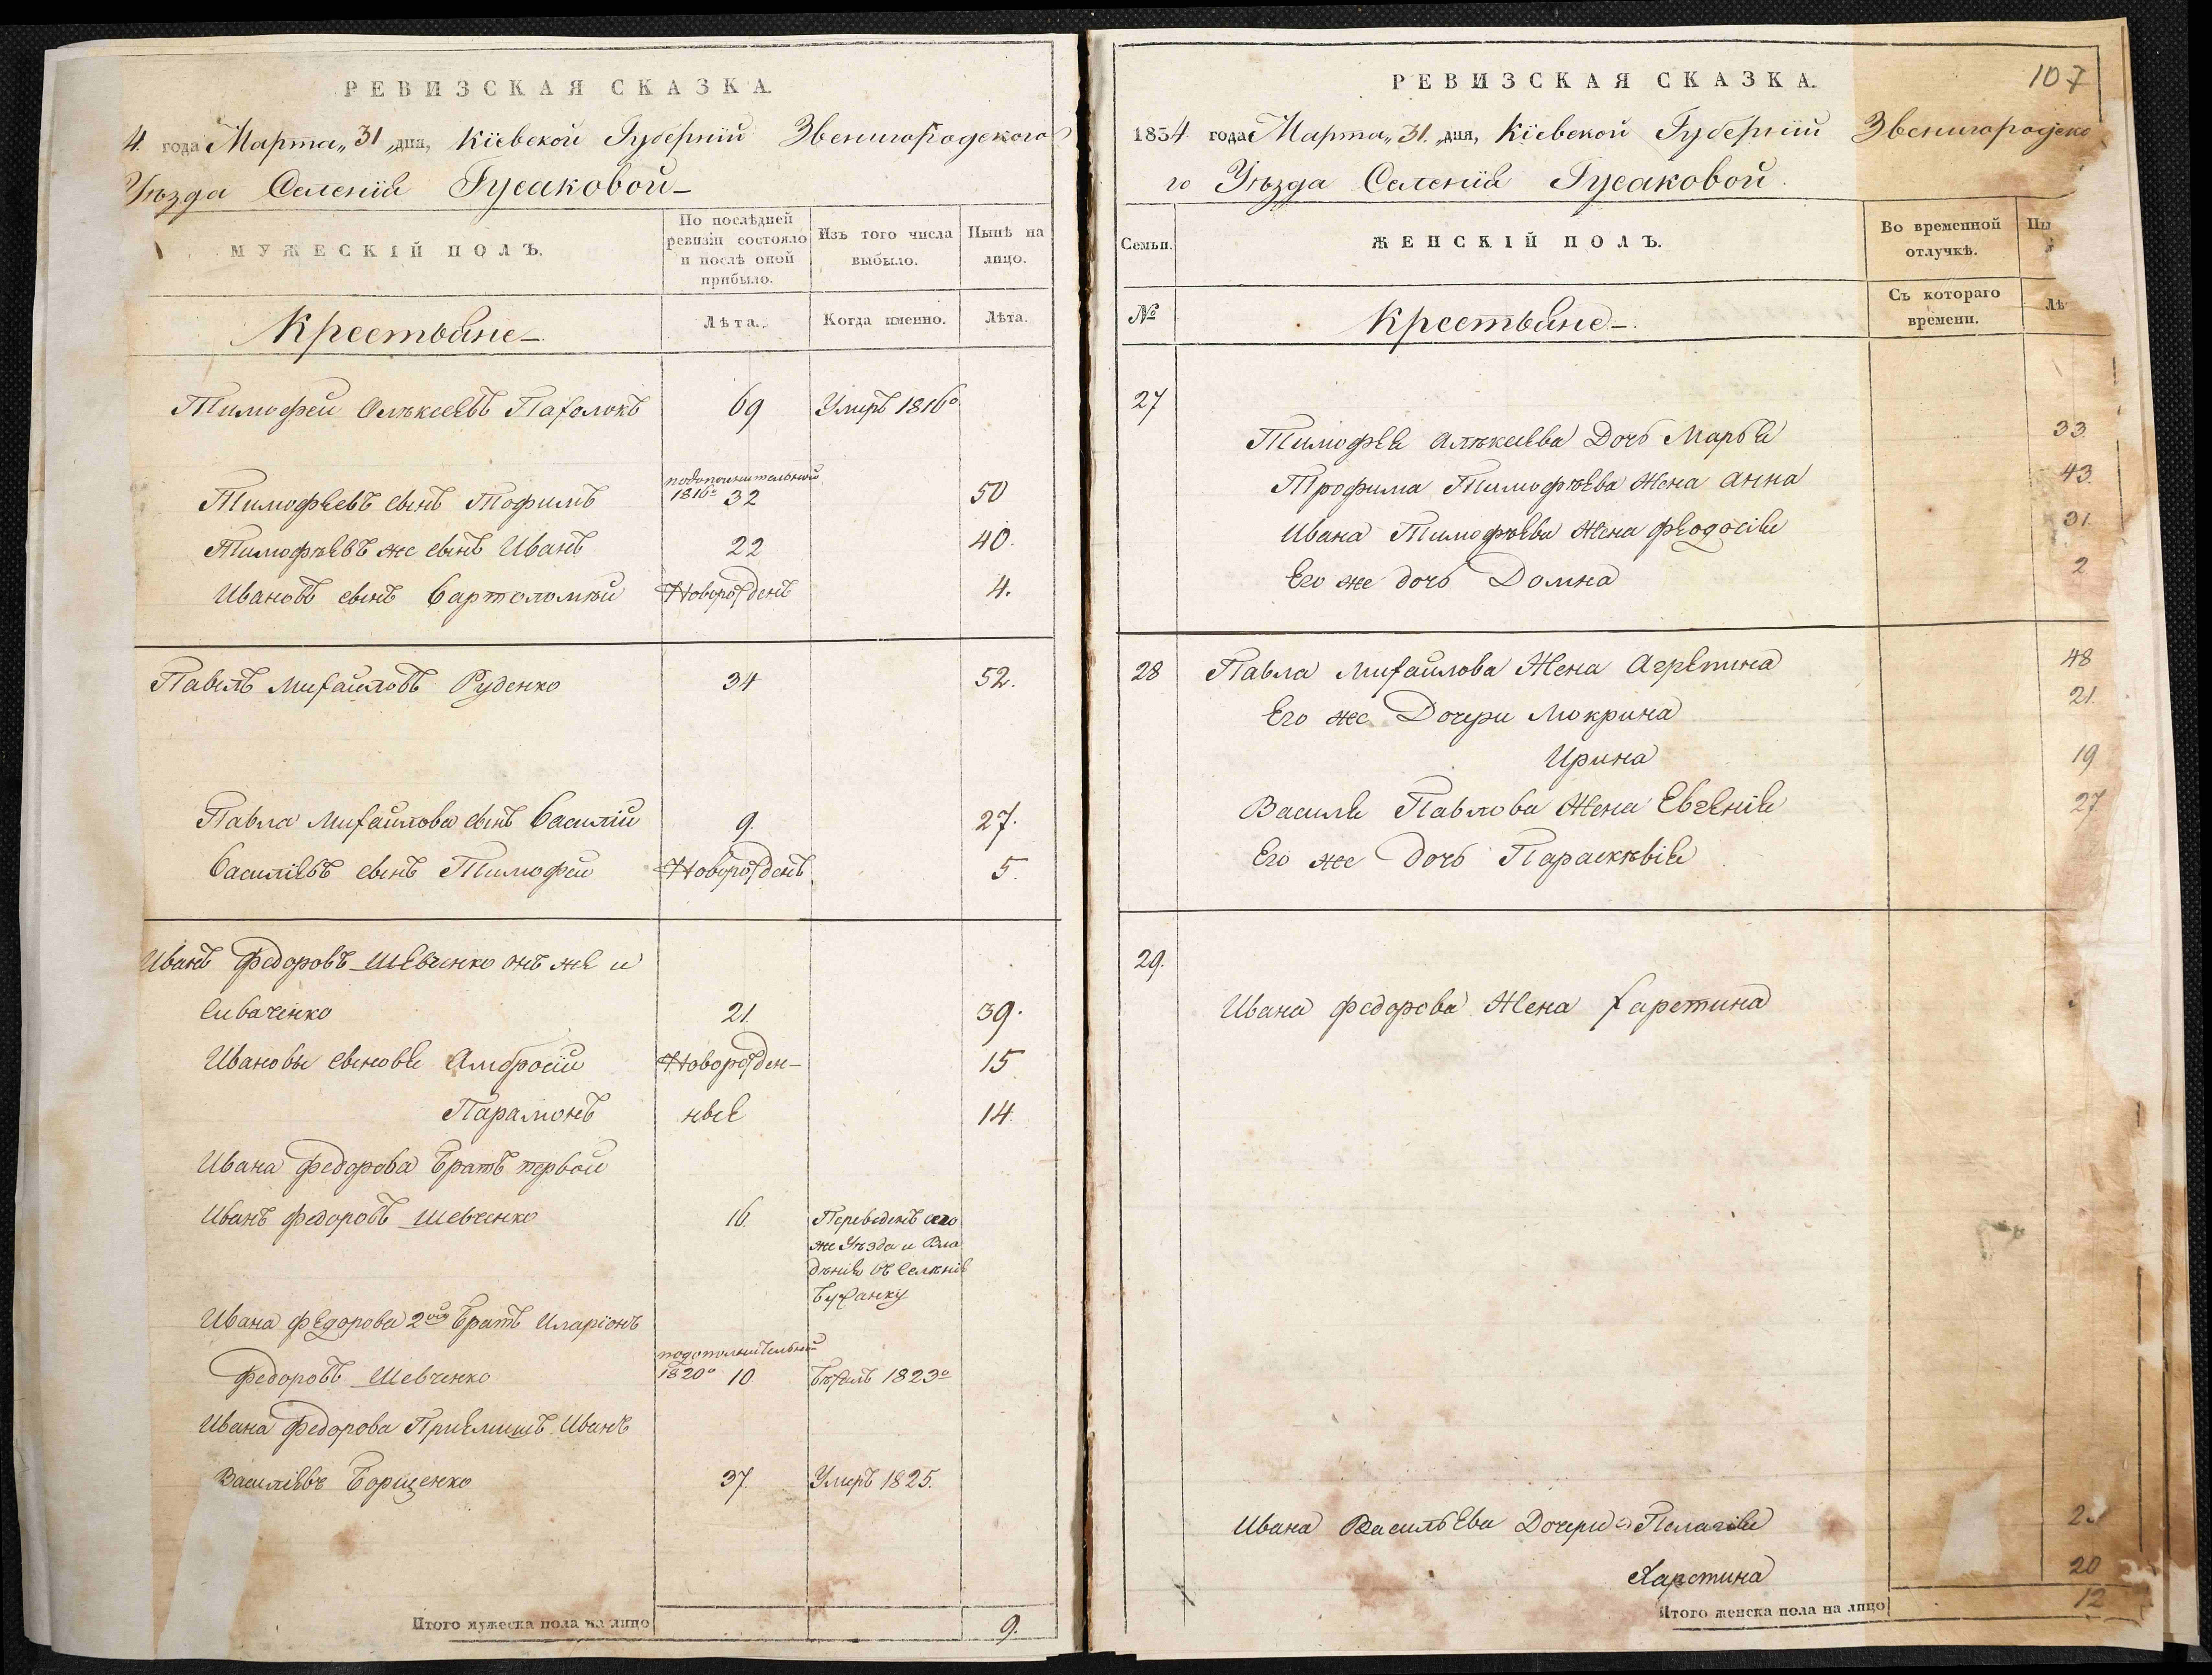 РЕВИЗСКАЯ СКАЗКА.
4. года Марта „31„ дня, Кіевской Губерніи Звенигородского
Уѣзда Селенія Гусаковой
МУЖЕСКІЙ ПОЛЪ.
По послѣдней ревизіи состояло и послѣ оной прибыло.
Изъ того числа выбыло.
Нынѣ на лицо.
Крестьяне
Лѣта.
Когда именно.
Лѣта.
Тимофей Олѣксеевъ Пахолокъ 69 Умеръ 1816го
подополнительной
Тимофѣевъ сынъ Тофимъ 1816го 32 50
Тимофѣевъ же сынъ Иванъ 22 40.
Ивановъ сынъ Вартоломѣй Новорожденъ 4.
Павелъ Михайловъ Руденко 34 52.
Павла Михайлова сынъ Василій 9. 27.
Василіевъ сынъ Тимофей Новорожденъ 5.
Иванъ Федоровъ Шевченко онъ же и
Сиваченко 21. 39.
Ивановы сыновья Амбросій Новорожден- 15
Парамонъ ные 14.
Ивана Федорова Братъ первой
Иванъ Федоровъ Шевченко 16. Переведенъ сего
же Уѣзда и Вла
дѣнія въ Селѣніе
Бужанку
Ивана Федорова 2ой Братъ Иларіонъ
подополнительной
Федоровъ Шевченко 1820го 10. Бѣжалъ 1823го
Ивана Федорова Приемишъ Иванъ
Василіевъ Борщенко 37. Умеръ 1825.
Итого мужеска пола на лицо 9.
107
РЕВИЗСКАЯ СКАЗКА.
1834 года Марта „31.„ дня, Кіевской Губерніи Звенигородско
го Уѣзда Селенія Гусаковой
Семьи.
ЖЕНСКІЙ ПОЛЪ.
Во временной отлучкѣ.
№
Крестьяне
Съ котораго времени.
27
Тимофея Алѣксеева Дочь Марья 33.
Трофима Тимофѣева Жена Анна 43.
Ивана Тимофѣева Жена Феодосія 31.
Его же дочь Домна 2
28 Павла Михайлова Жена Агрепина 48
Его же Дочери Мокрина 21.
Ирина 19
Василя Павлова Жена Евгенія 27
Его же дочь Параскѣвія
29.
Ивана Федорова Жена Харетина
Ивана Васильева Дочери Пелагія
Харетина 20
Итого женска пола на лицо 12